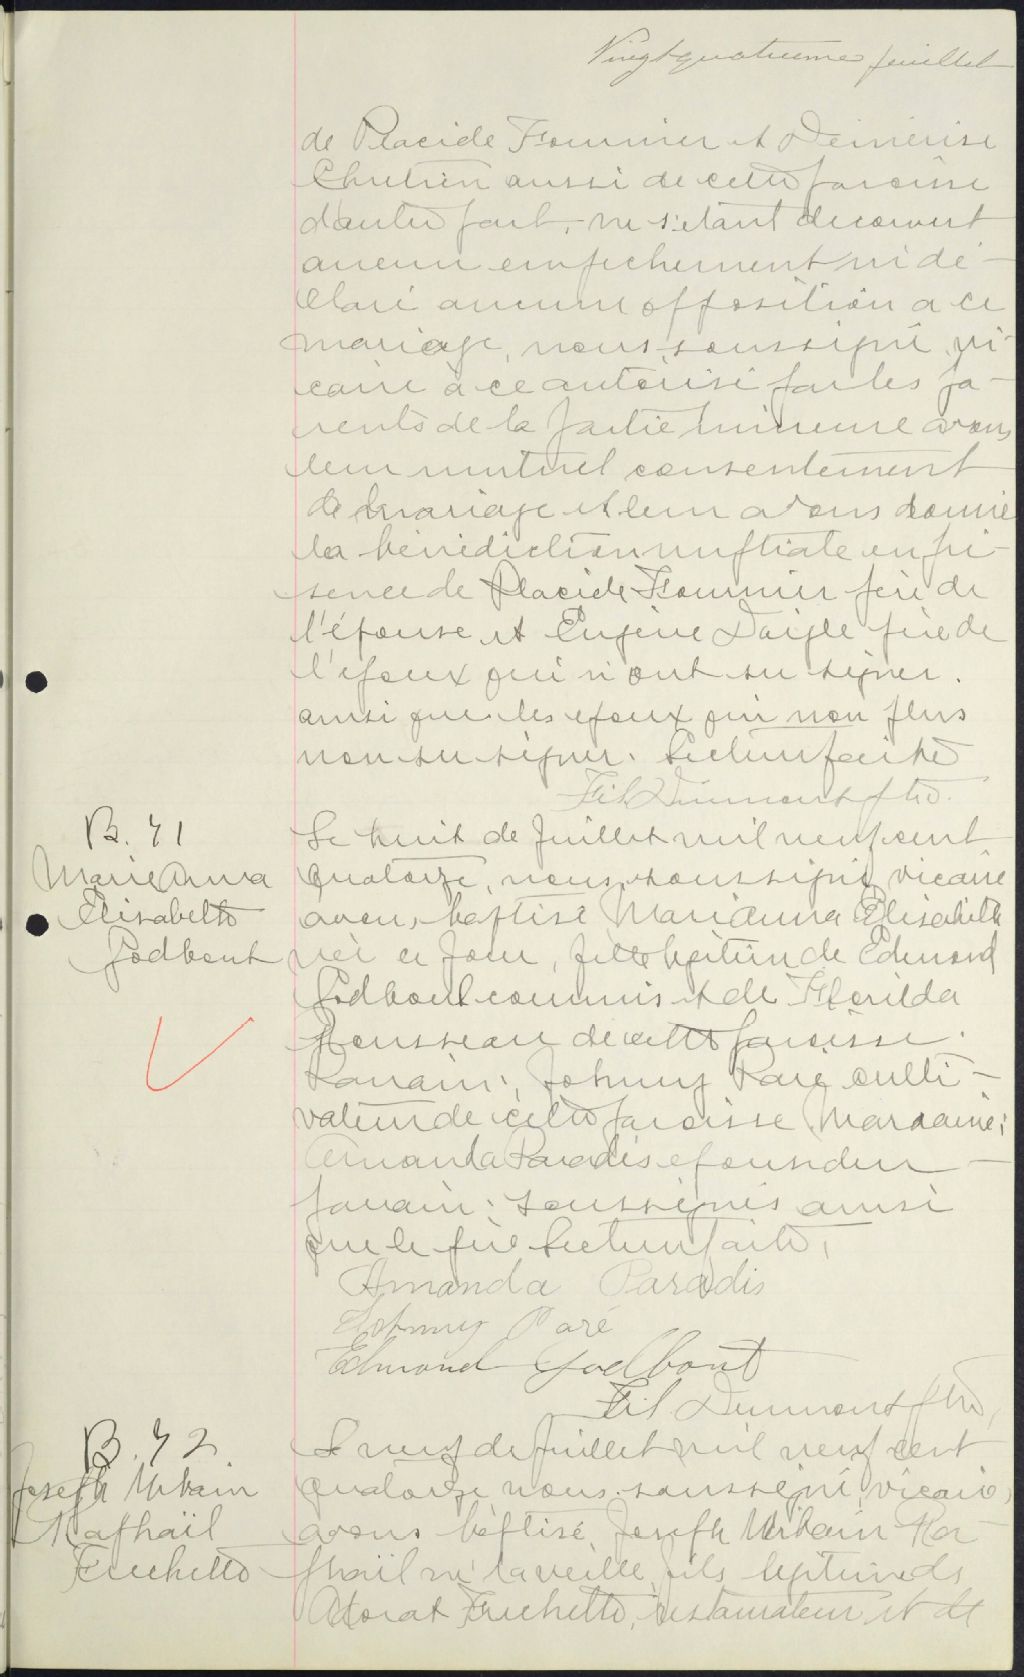 Vingtquatrième feuillet
de Placide Fournier et Démérise
Chretien aussi de cette paroisse
d'autre part, ne s'etant decouvert
aucun empechement ni dé-
claré aucune opposition a ce
mariage, nous, soussigné, vi-
caire à ce autorisé par les pa-
rents de la partie mineure avons
leur mutuel consentement
de mariage et leur avons donné
la bénédiction nuptiale en pré-
sence de Placide Fournier père de
l'épouse et Eugène Daigle père de
l'epoux qui n'ont su signer.
ainsi que les epoux qui non plus
non su signer. Lecture faite
Fil Dumont ptre.
B. 41
Marie Anna
Elisabeth
Godbout
Le huit de Juillet mil neuf cent
quatorze, nous, soussigné, vicaire
avons baptisé Marie Anna Elisabeth
née ce jour, fille légitime de Edmond
Godbout commis et de Florilda
Rousseau de cette paroisse.
Parrain: Johnny Paré culti-
vateur de cette paroisse Marraine:
Amanda Paradis epouse du
parrain: soussignés ainsi
que le père Lecture faite.
Amanda Paradis
Johnny Paré
Edmond Godbout
Fil Dumont ptre,
B. 42
Joseph Urbain
Raphaël
Frechette
Le neuf de Juillet mil neuf cent
quatorze nous, soussigné, vicaire,
avons baptisé Joseph Urbain Ra-
phaël né la veille, fils legitime de
Adorat Frechette, restaurateur et de